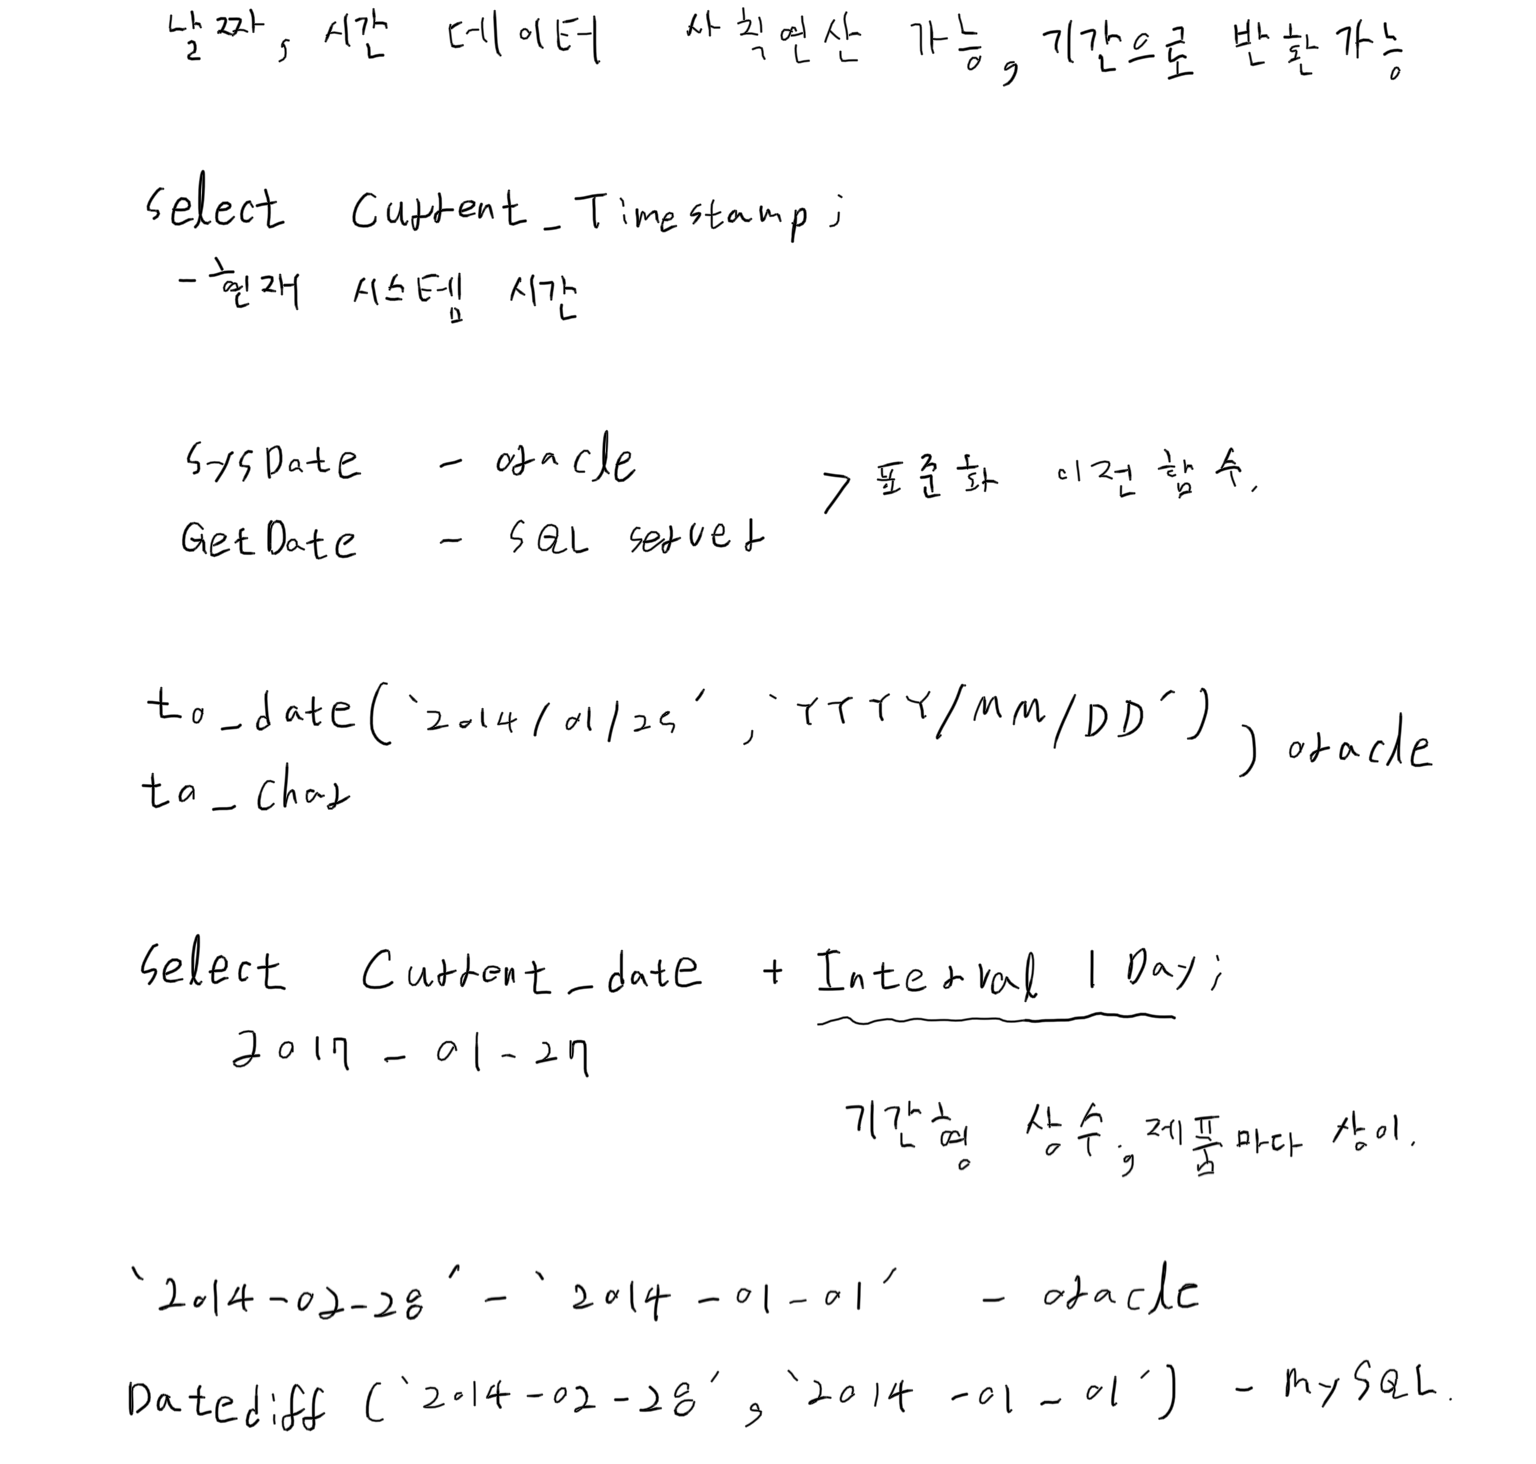 날짜, 시간 데이터 사칙연산 가능, 기간으로 반환가능
select Current_Timestamp;
- 현재 시스템 시간
SysDate - oracle
> 표준화 이전 함수.
GetDate - SQL server
to_date(`2014/01/25´, `YYYY/MM/DD´)
) oracle
to_char
select Current_date + Interval 1 Day;
2017-01-27
기간형 상수, 제품마다 상이.
`2014-02-28´ - `2014-01-01´ - oracle
Datediff (`2014-02-28´, `2014-01-01´) - mySQL.